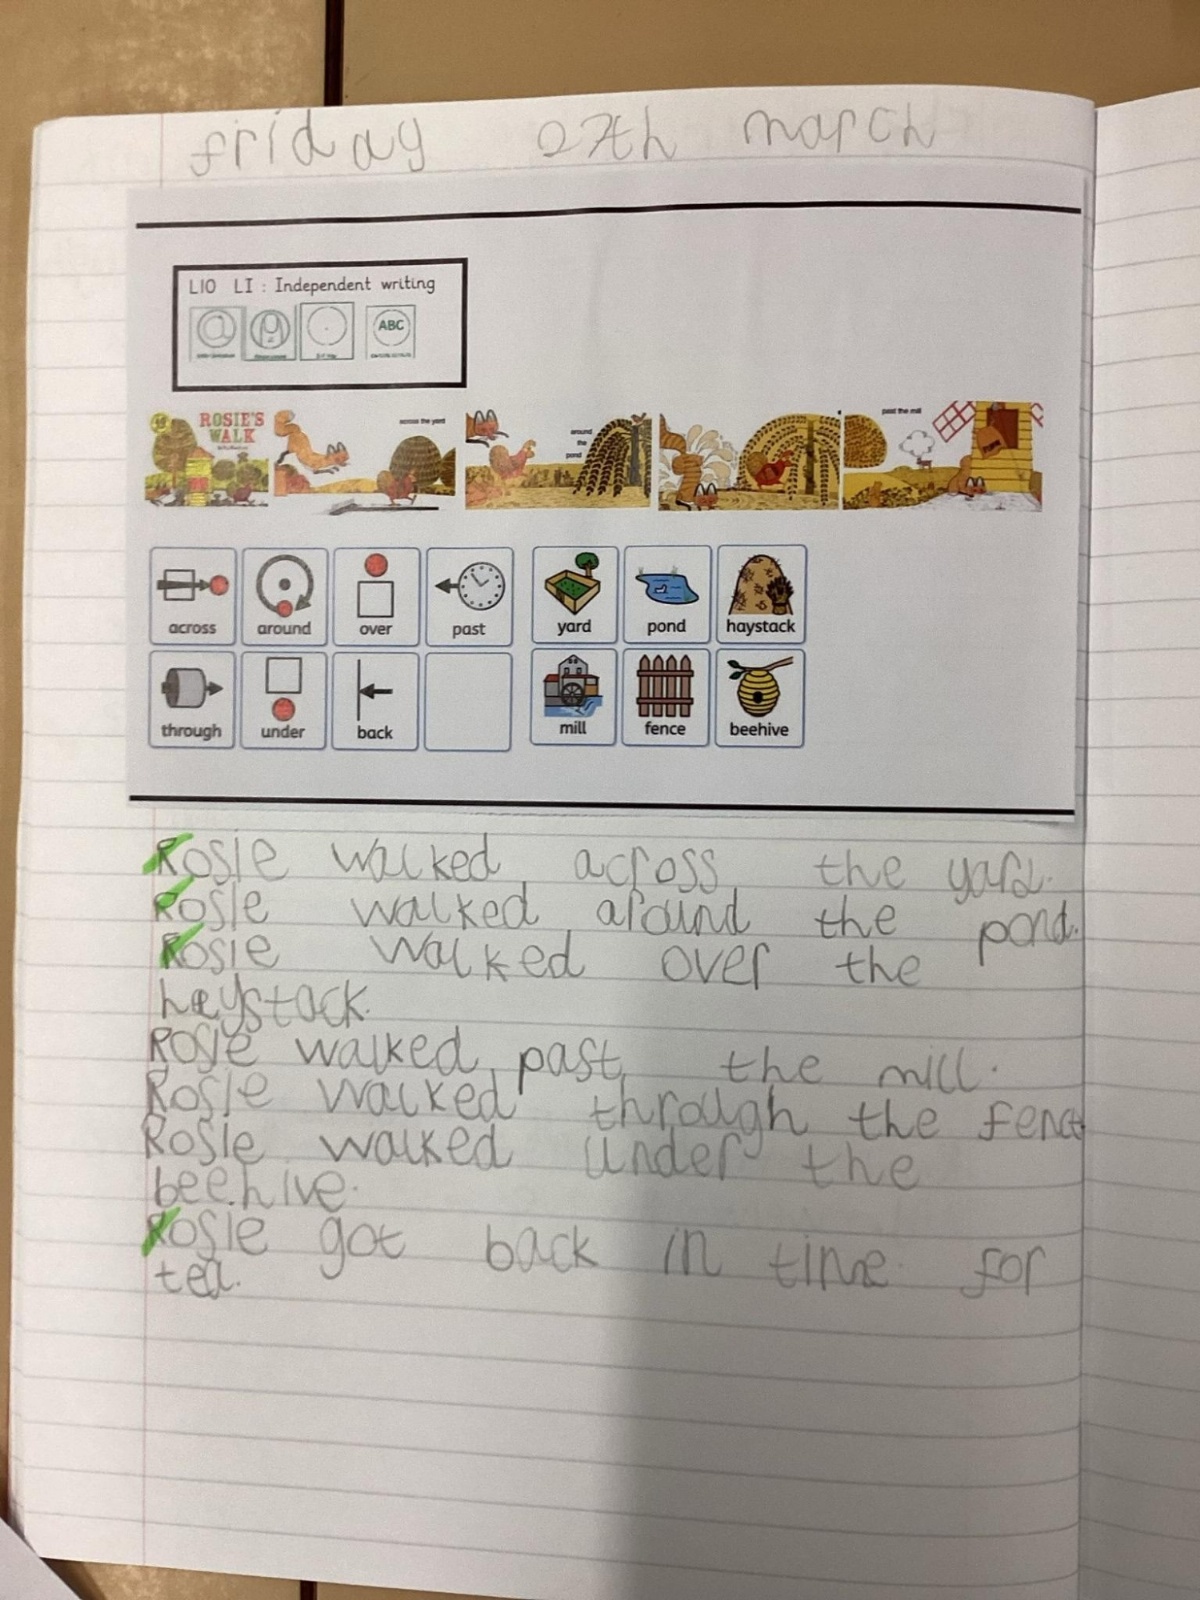 friday 27th march
L10 LI : Independent writing
ABC
ROSIE'S
WALK
across the yard
around
the
pond
past the mill
across around over past yard pond haystack
through under back mill fence beehive
Rosie walked across the yard.
Rosie walked around the pond.
Rosie walked over the
haystack.
Rosie walked past the mill.
Rosie walked through the fence
Rosie walked under the
beehive.
Rosie got back in time for
tea.